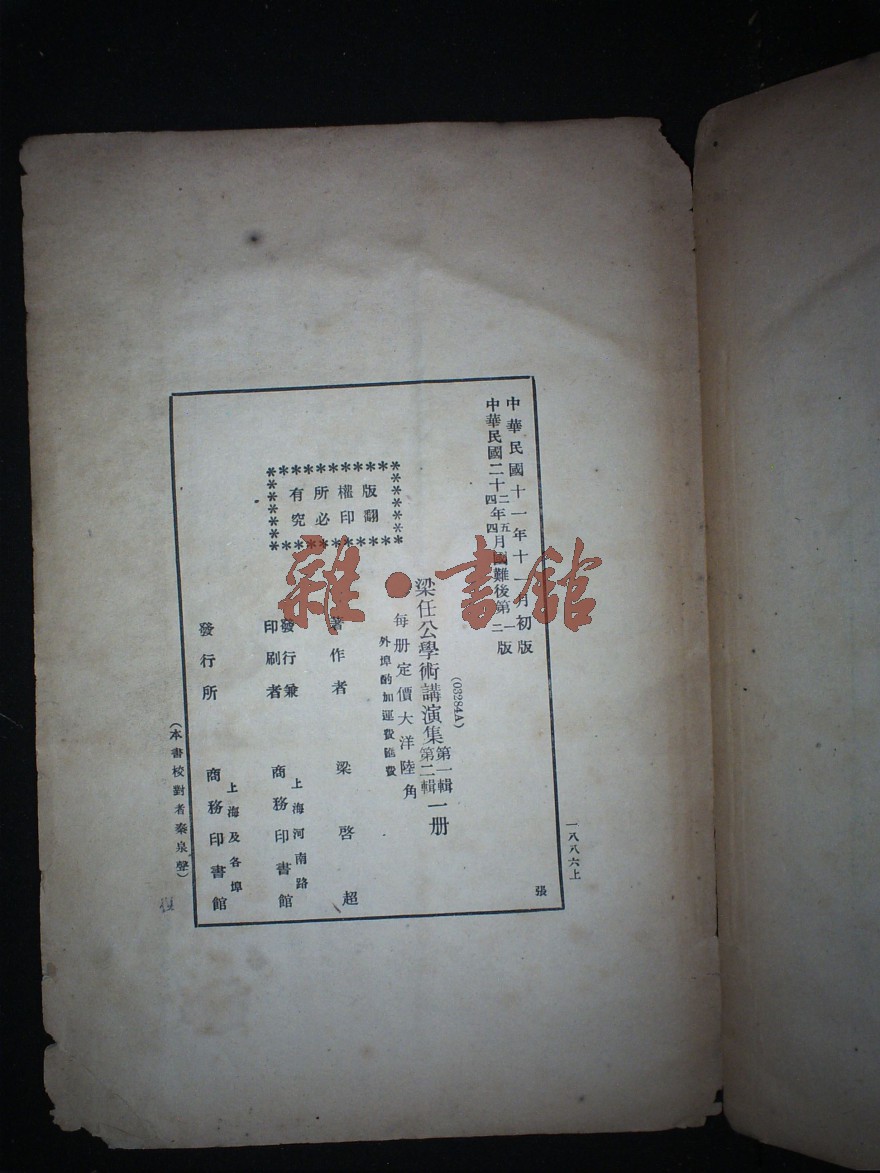 中華民國十一年十一月初版
中華民國二十二年五月國難後第一版
四年四月　二版
(03284A)
梁任公學術講演集第一輯第二輯一册
每册定價大洋陸角
外埠酌加運費匯費
版權所有
翻印必究
著作者　梁啓超
發行兼印刷者　上海河南路
商務印書館
發行所　上海及各埠
商務印書館
(本書校對者秦泉聲)
一八八六上
張
雜·書館